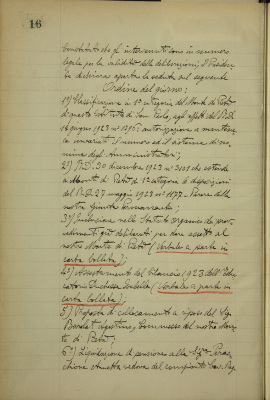 16
Constatato che gl'intervenuti sono in numero
legale per la validità delle deliberazioni, il Presiden-
te dichiara aperta la seduta sul seguente
Ordine del giorno:
1°) Classificazione in 1a categoria del Monte di Pietà
di questo Istituto di San Paolo, agli effetti del R.D.
14 giugno 1923 n° 1396: autorizzazione a mantene-
re invariati il numero ed il sistema di no-
mina degli Amministratori;
2°) R.D. 30 dicembre 1923 n° 3101 che estende
ai Monti di Pietà di 1a categoria le disposizioni
del R.D. 27 maggio 1923 n° 1177. Parere della
nostra Giunta
3°) Inclusione nello Statuto organico dei prov-
vedimenti già deliberati per dare assetto al
nostro Monte di Pietà (Verbale a parte in
carta bollata);
4°) Assestamento del Bilancio 1923 dell'Edu-
catorio Duchessa Isabella (Verbale a parte in
carta bollata);
5°) Proposta di collocamento a riposo del Sig.
Agostino, Commesso del nostro Mon-
te di Pietà;
6°) Liquidazione di pensione alla Sig.ra
vedova del compianto Cav. Rag.